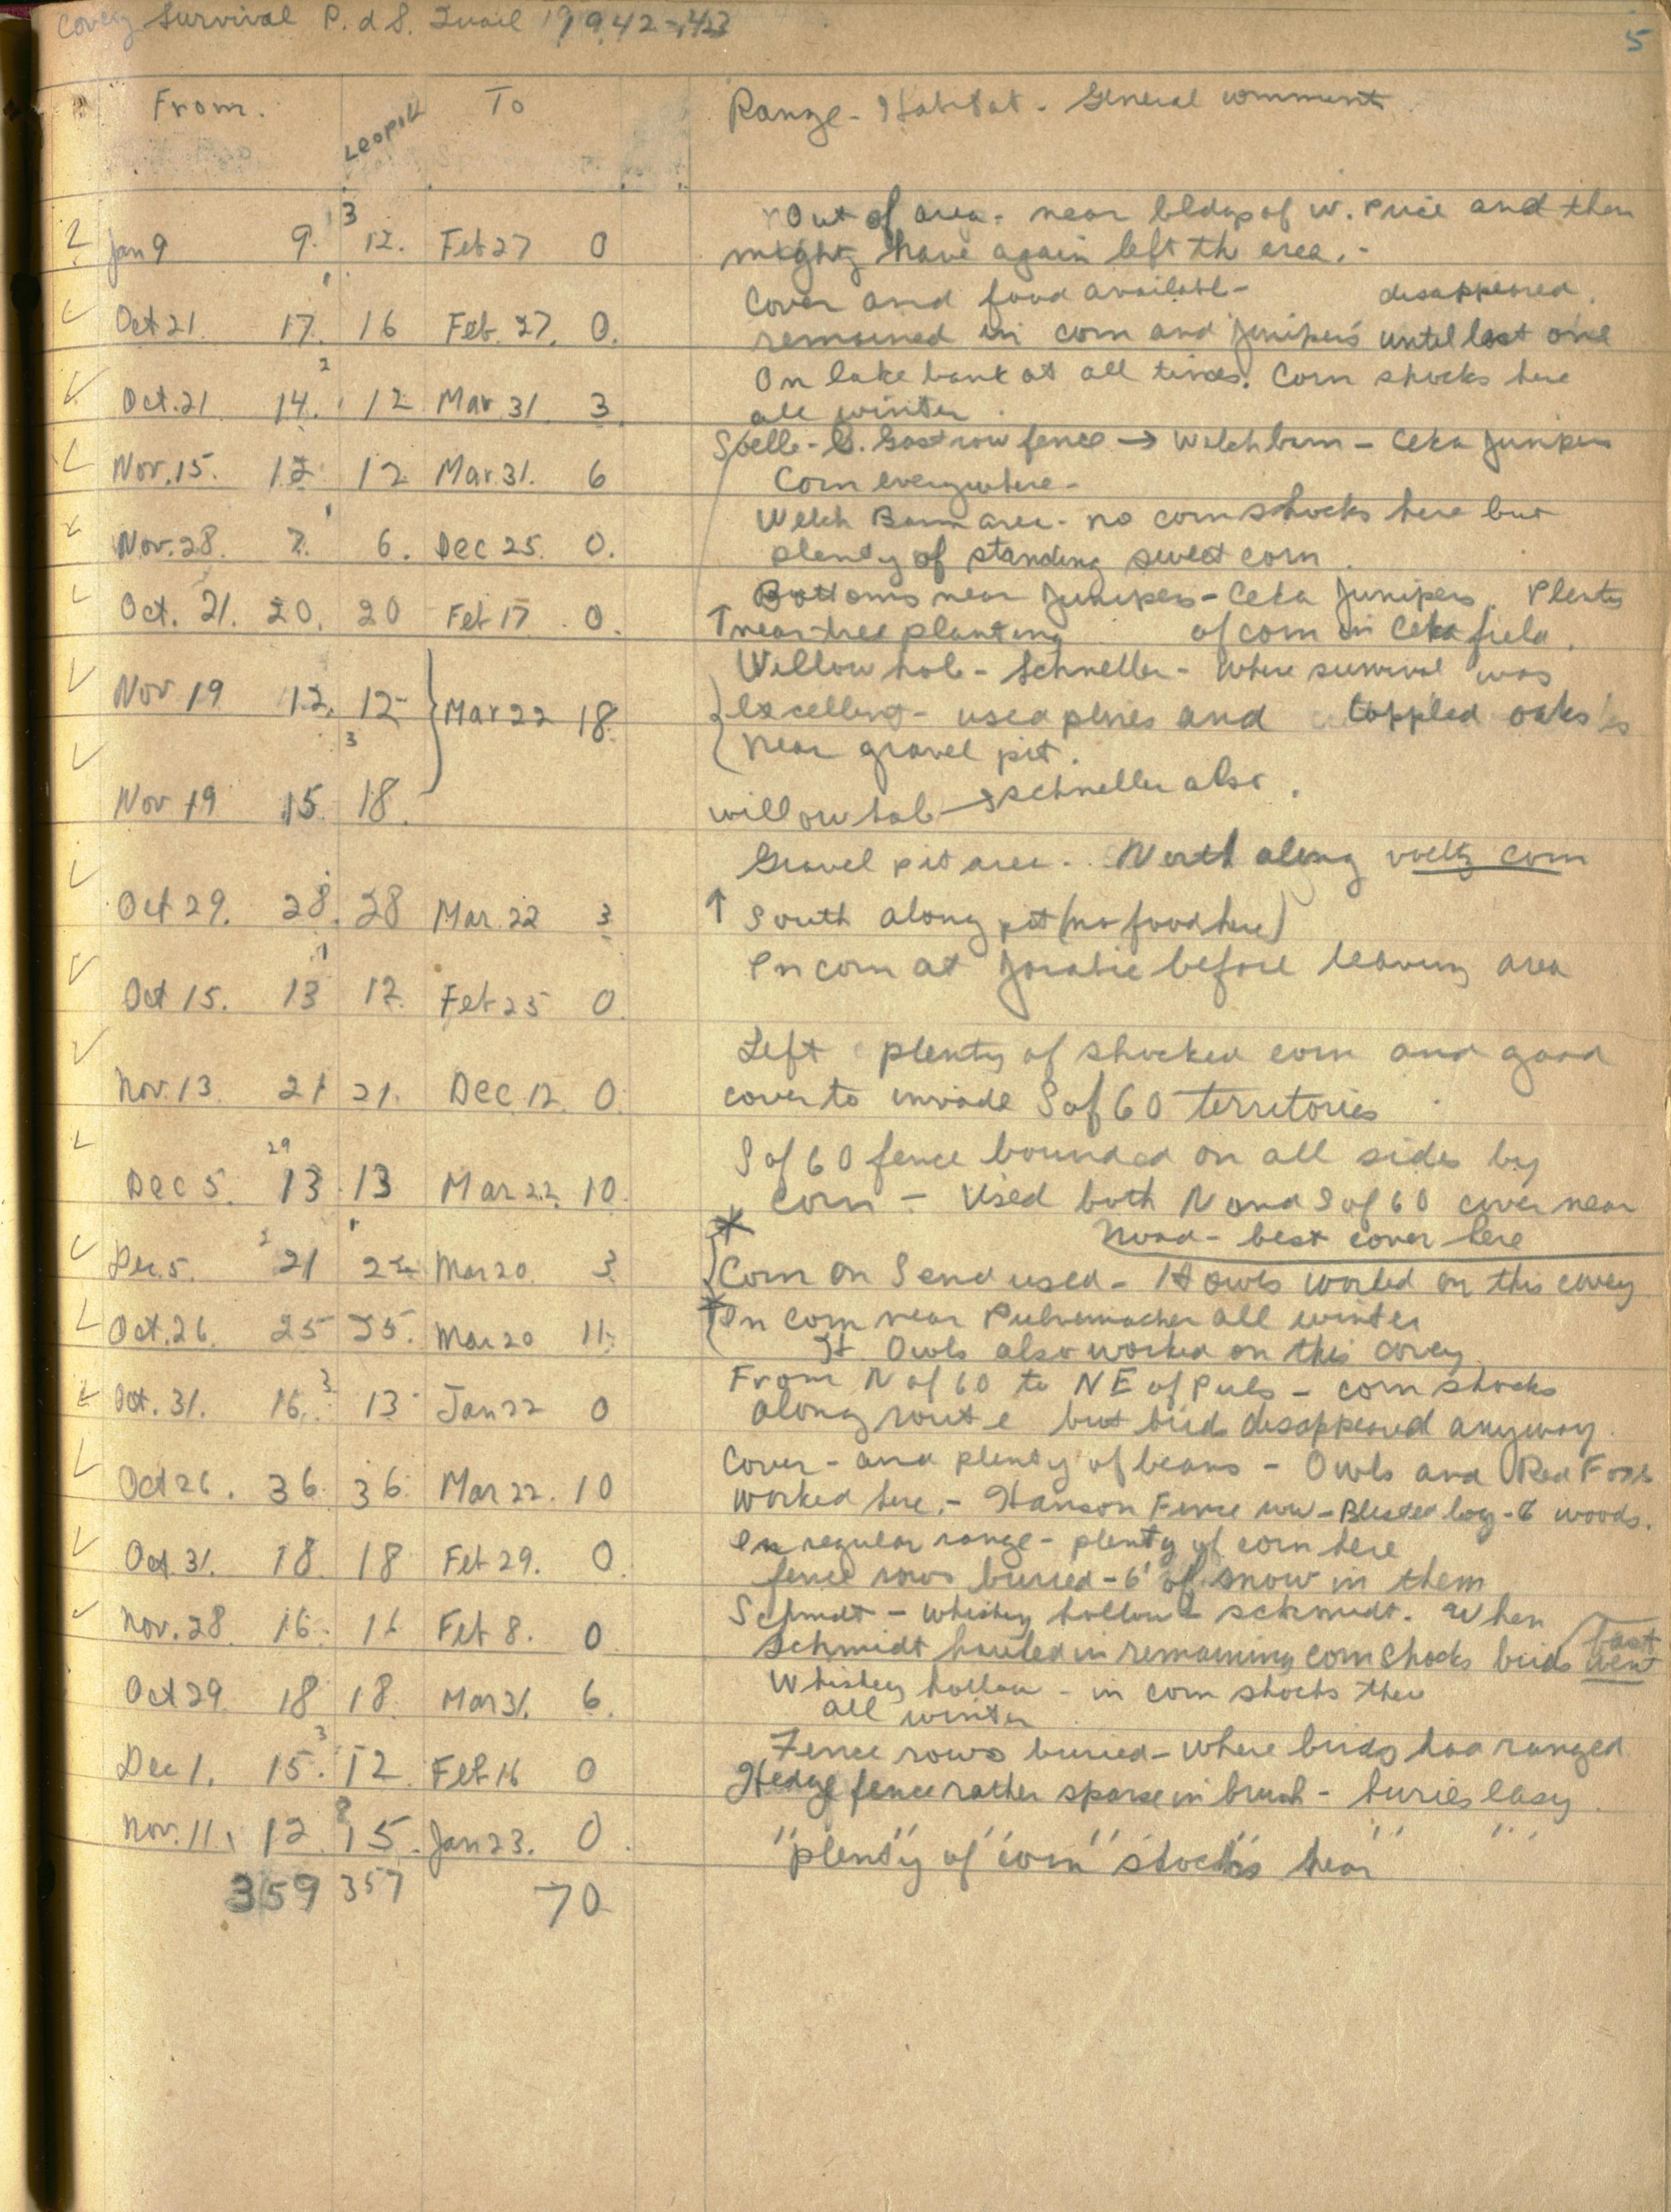 Covey Survival P. d S. Quail 1942-43
5
From.
Leopold
To
Range - Habitat - General comments
Jan 9 9. 3 12. Feb 27 0
Out of area - near bldgs of W. Price and then
might have again left th area. -
Cover and food available - disappeared.
Oct 21. 17. 16 Feb. 27. 0.
remained in corn and junipers until last one
On lake bank at all times. Corn shocks here
Oct. 21 14. 2 12 Mar. 31 3
all winter.
Spelle - S. Gastrow fence → Welch barn - Ceka Junipers
Nov. 15. 12 12 Mar. 31. 6
Corn everywhere -
Welch Barn area - no corn shocks here but
Nov. 28. 7. 6. Dec 25. 0.
plenty of standing sweet corn.
Bottoms near Junipers - Ceka Junipers. Plenty
Oct. 21. 20. 20 Feb 17 0.
↑ near tree planting of corn in Ceka field.
Willow hab - Schneller - Where survival was
Nov 19 12. 12 Mar 22 18.
excellent - used pines and toppled oaks
near gravel pit.
Nov 19 15. 3 18.
willow hab → Schneller also.
Gravel pit area - North along voeltz corn
Oct 29. 28. 28 Mar. 22 3
↑ South along pit (no food here)
In corn at before leaving area
Oct 15. 13 1 12. Feb 25 0.
Left plenty of shocked corn and good
Nov. 13. 21 21. Dec. 12. 0.
cover to invade S of 60 territories
S of 60 fence bounded on all sides by
Dec 5. 29 13. 13 Mar 22. 10.
corn - Used both N and S of 60 cover near
* Road - best cover here
Dec. 5. 21 22 Mar 20. 3
Corn on S end used - H owls worked on this covey
* In corn near Pulvermacher all winter
Oct. 26. 25 25. Mar 20 11.
H. Owls also worked on this covey
From N of 60 to NE of Puls - corn shocks
Oct. 31. 16. 3 13 Jan 22 0
along route but birds disappeared anyway.
Cover - and plenty of beans - Owls and Red Foxes
Oct 26. 36. 36. Mar 22. 10
worked here. - Hanson Fence row - log - & woods.
In regular range - plenty of corn here
Oct. 31. 18. 18 Feb 29. 0.
fence rows buried - 6' of snow in them
Schmidt - Whiskey hollow & Schmidt. When
Nov. 28 16. 16 Feb 8. 0.
Schmidt hauled in remaining corn shocks birds went fast
Whiskey hollow - in corn shocks there
Oct 29. 18 18. Mar 31. 6.
all winter
Fence rows buried - where birds had ranged
Dec 1. 15. 3 12. Feb 16 0
Hedge fence rather sparse in brush - buries easy.
Nov. 11. 12. 15. Jan 23. 0.
" " " " " " "
plenty of corn shocks near
359 357 70